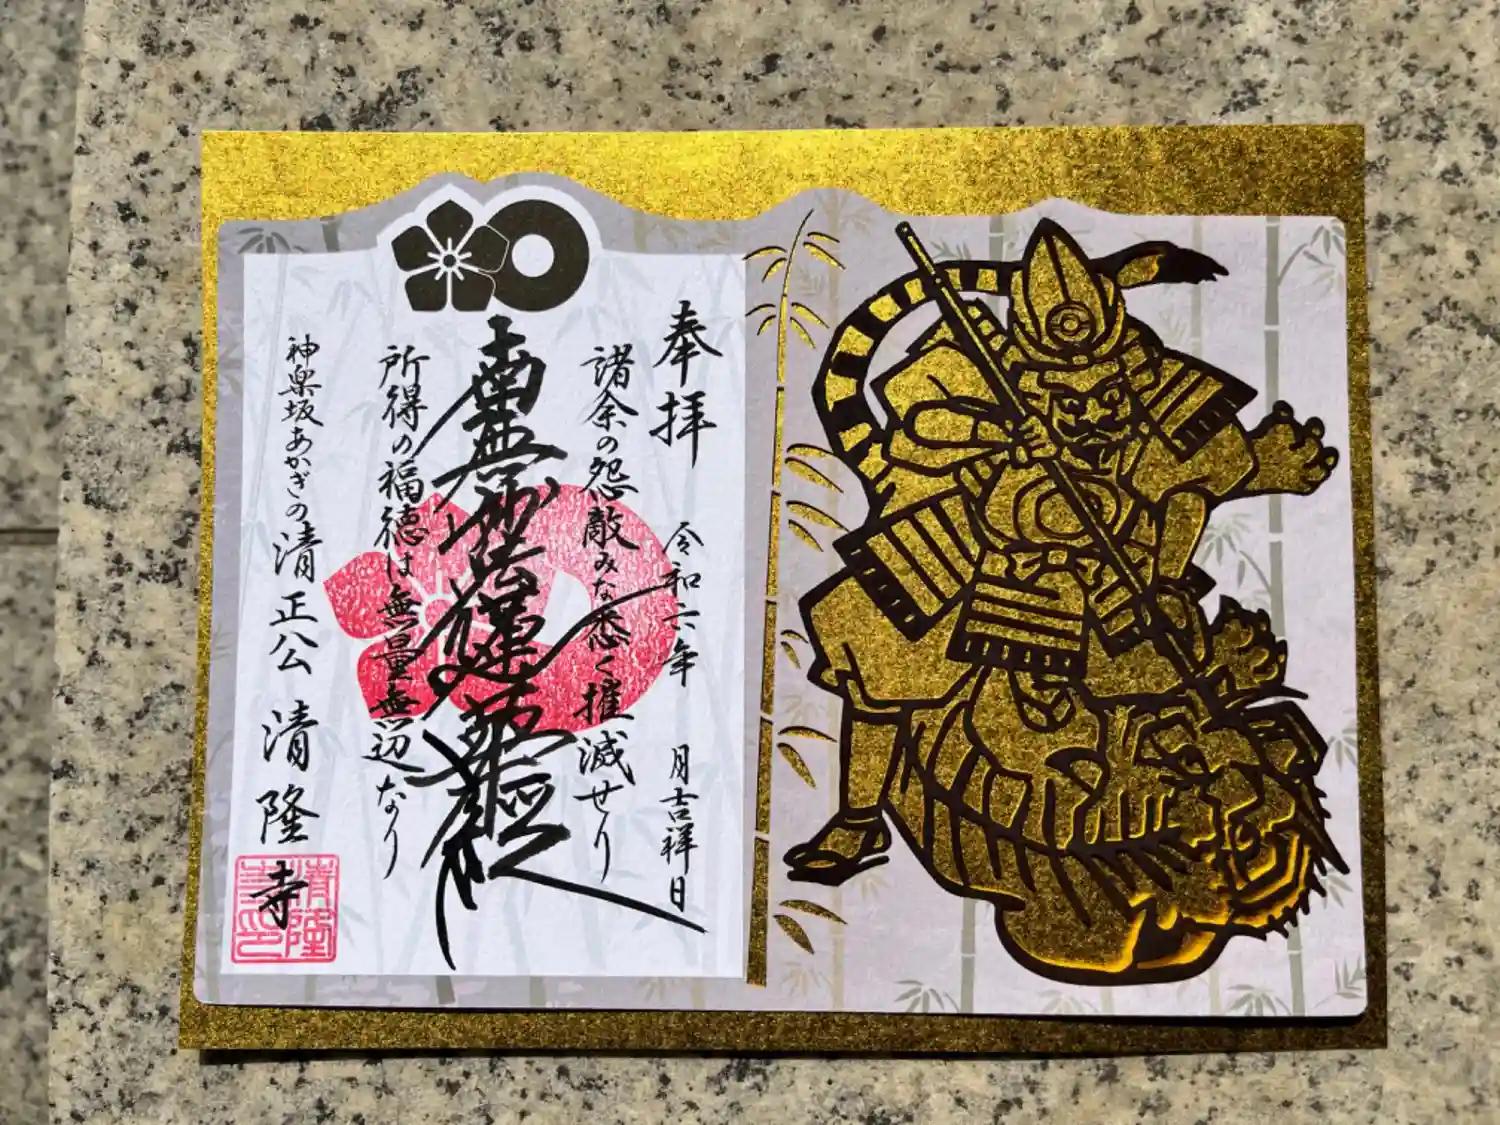 奉拝
令和六年 月吉祥日
諸余の怨敵みな悉く摧滅せり
南無妙法蓮華経
所得の福徳は無量無辺なり
神楽坂あかぎの清正公 清隆寺
清隆寺印